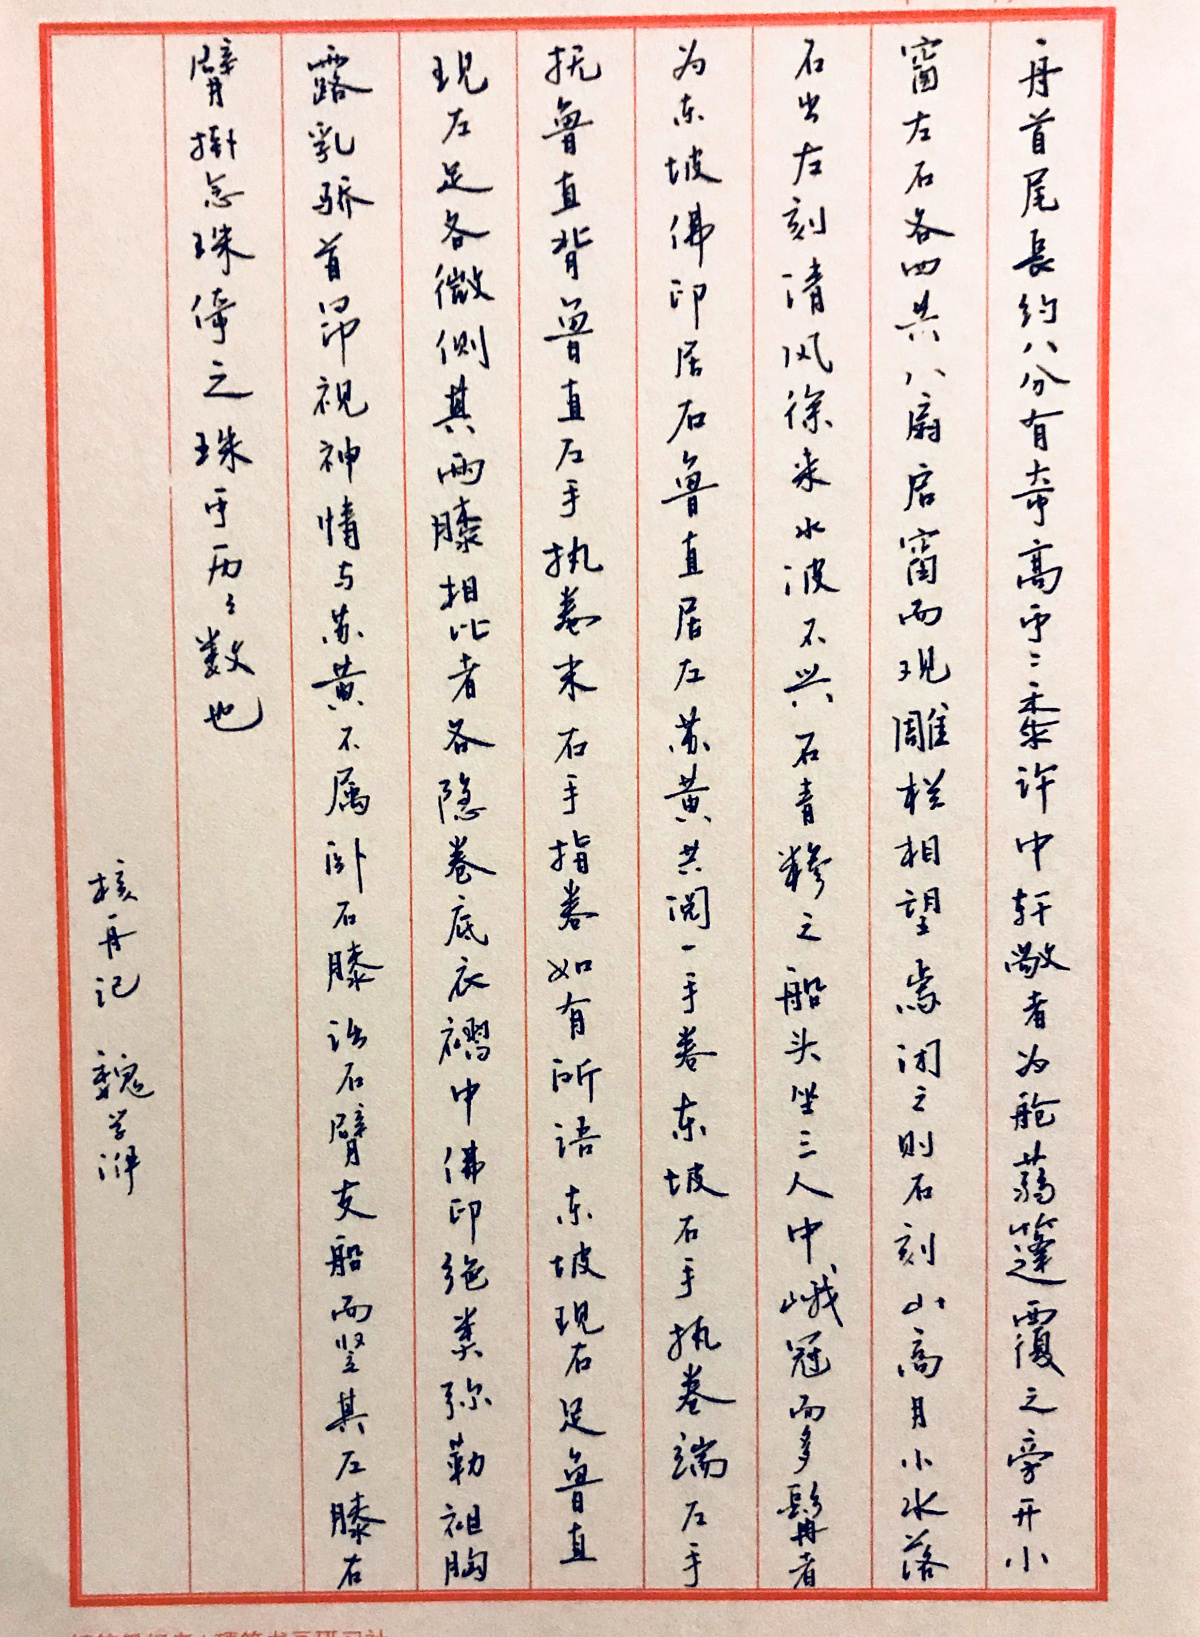 舟首尾长约八分有奇高可二黍许中轩敞者为舱蒻篷覆之旁开小
窗左右各四共八扇启窗而观雕栏相望焉闭之则右刻山高月小水落
石出左刻清风徐来水波不兴石青糁之船头坐三人中峨冠而多髯者
为东坡佛印居右鲁直居左苏黄共阅一手卷东坡右手执卷端左手
抚鲁直背鲁直左手执卷末右手指卷如有所语东坡现右足鲁直
现左足各微侧其两膝相比者各隐卷底衣褶中佛印绝类弥勒袒胸
露乳骄首昂视神情与苏黄不属卧右膝诎右臂支船而竖其左膝右
臂掛念珠倚之珠可历々数也
核舟记 魏学洢